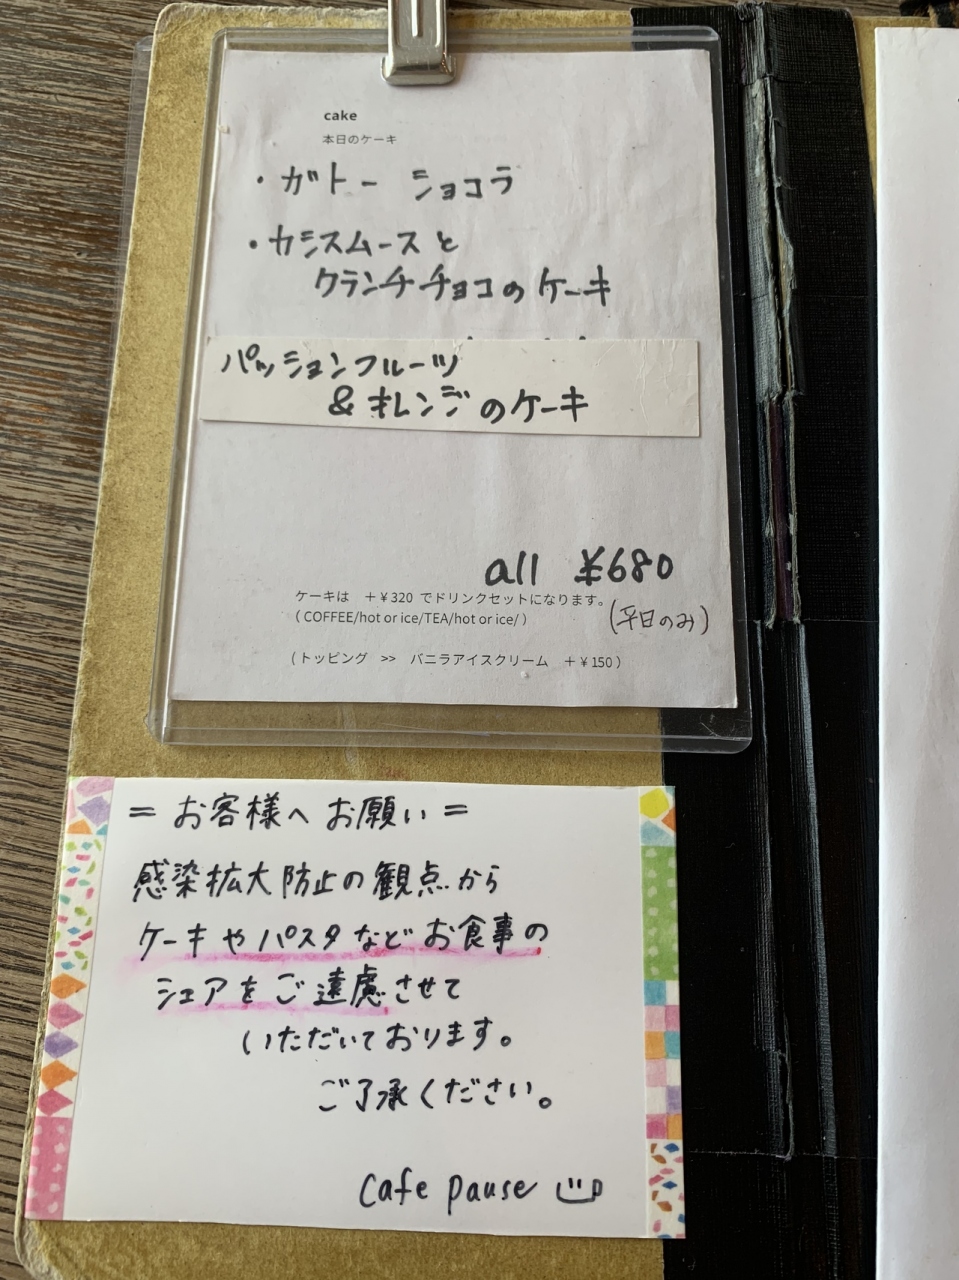 cake
本日のケーキ
・ガトーショコラ
・カシスムースと
クランチチョコのケーキ
パッションフルーツ
&オレンジのケーキ
all ¥680
ケーキは ＋¥320 でドリンクセットになります。
(平日のみ)
( COFFEE/hot or ice/TEA/hot or ice/ )
( トッピング >> バニラアイスクリーム ＋¥150 )
＝お客様へお願い＝
感染拡大防止の観点から
ケーキやパスタなどお食事の
シェアをご遠慮させて
いただいております。
ご了承ください。
Cafe pause